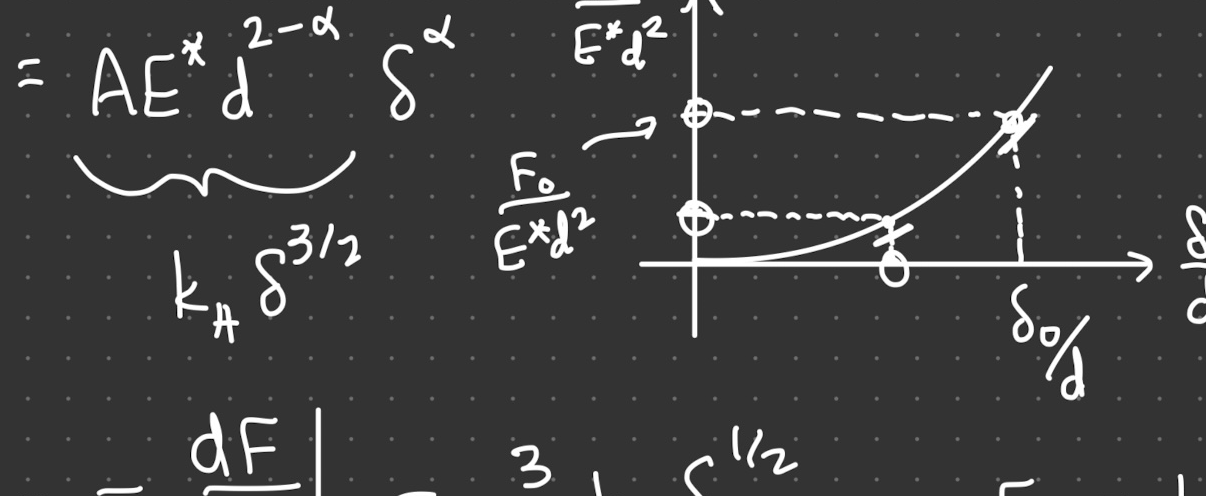 = A E* d^{2-α} δ^α
k_H δ^{3/2}
E* d²
F₀ / E* d²
δ₀/d
= dF | = 3 δ^{1/2}